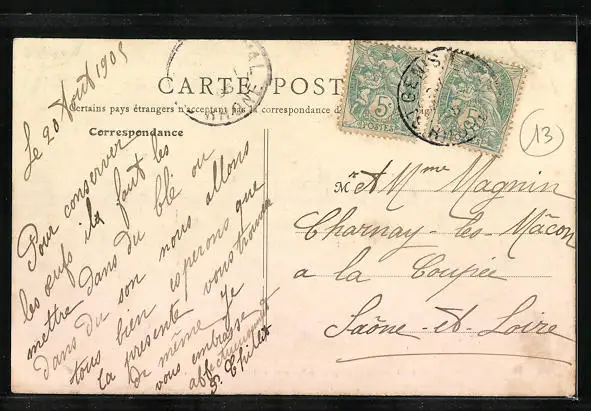 CARTE POST
Certains pays étrangers n'acceptent pas la correspondance d
Correspondance
Le 20 Aout 1905
Pour conserver
les œufs il faut les
mettre dans du blé ou
dans du son nous allons
tous bien esperons que
la presente vous trouvera
de même je
vous embrasse
affectueusement
P. Chillet
M A Mme Magnin
Charnay-les-Mâcon
a la Coupée
Saône-et-Loire
13
5c
POSTES
GENIS
RHONE